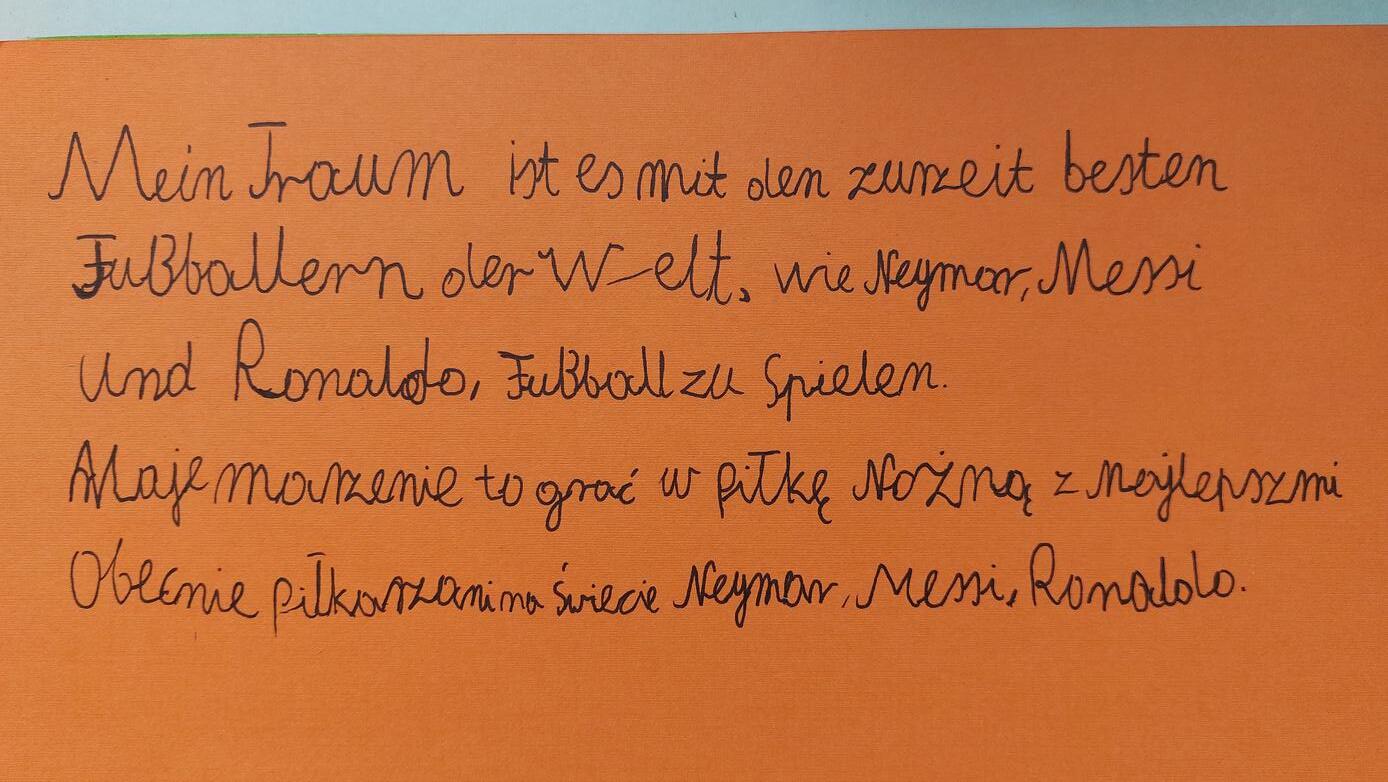 Mein Traum ist es mit den zurzeit besten
Fußballern der Welt, wie Neymar, Messi
und Ronaldo, Fußball zu spielen.
Moje marzenie to grać w piłkę Nożną z Najlepszmi
Obecnie piłkarzani na świecie Neymar, Messi, Ronaldo.